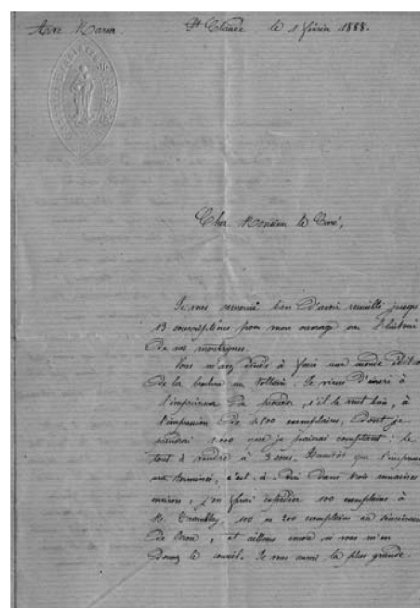 Ave Maria
St Claude le 1 février 1888.
Cher Monsieur le Curé,
Je vous remercie bien d'avoir recueilli jusque
13 souscriptions pour mon ouvrage ou l'histoire
de nos montagnes.
Vous m'avez décidé à faire une édition
de la brochure sur Voltaire. Je viens d'écrire à
l'imprimeur de, s'il le veut bien, à
l'impression de exemplaires, dont je
prendrai 1000 que je paierai comptant; le
tout à vendre à 3 sous. Aussitôt que l'impression
sera terminée, c'est-à-dire dans trois semaines
environ, j'en ferai expédier 100 exemplaires à
M., 100 ou 200 exemplaires au séminaire
de, et ailleurs encore si vous m'en
donnez le conseil. Je vous aurai la plus grande